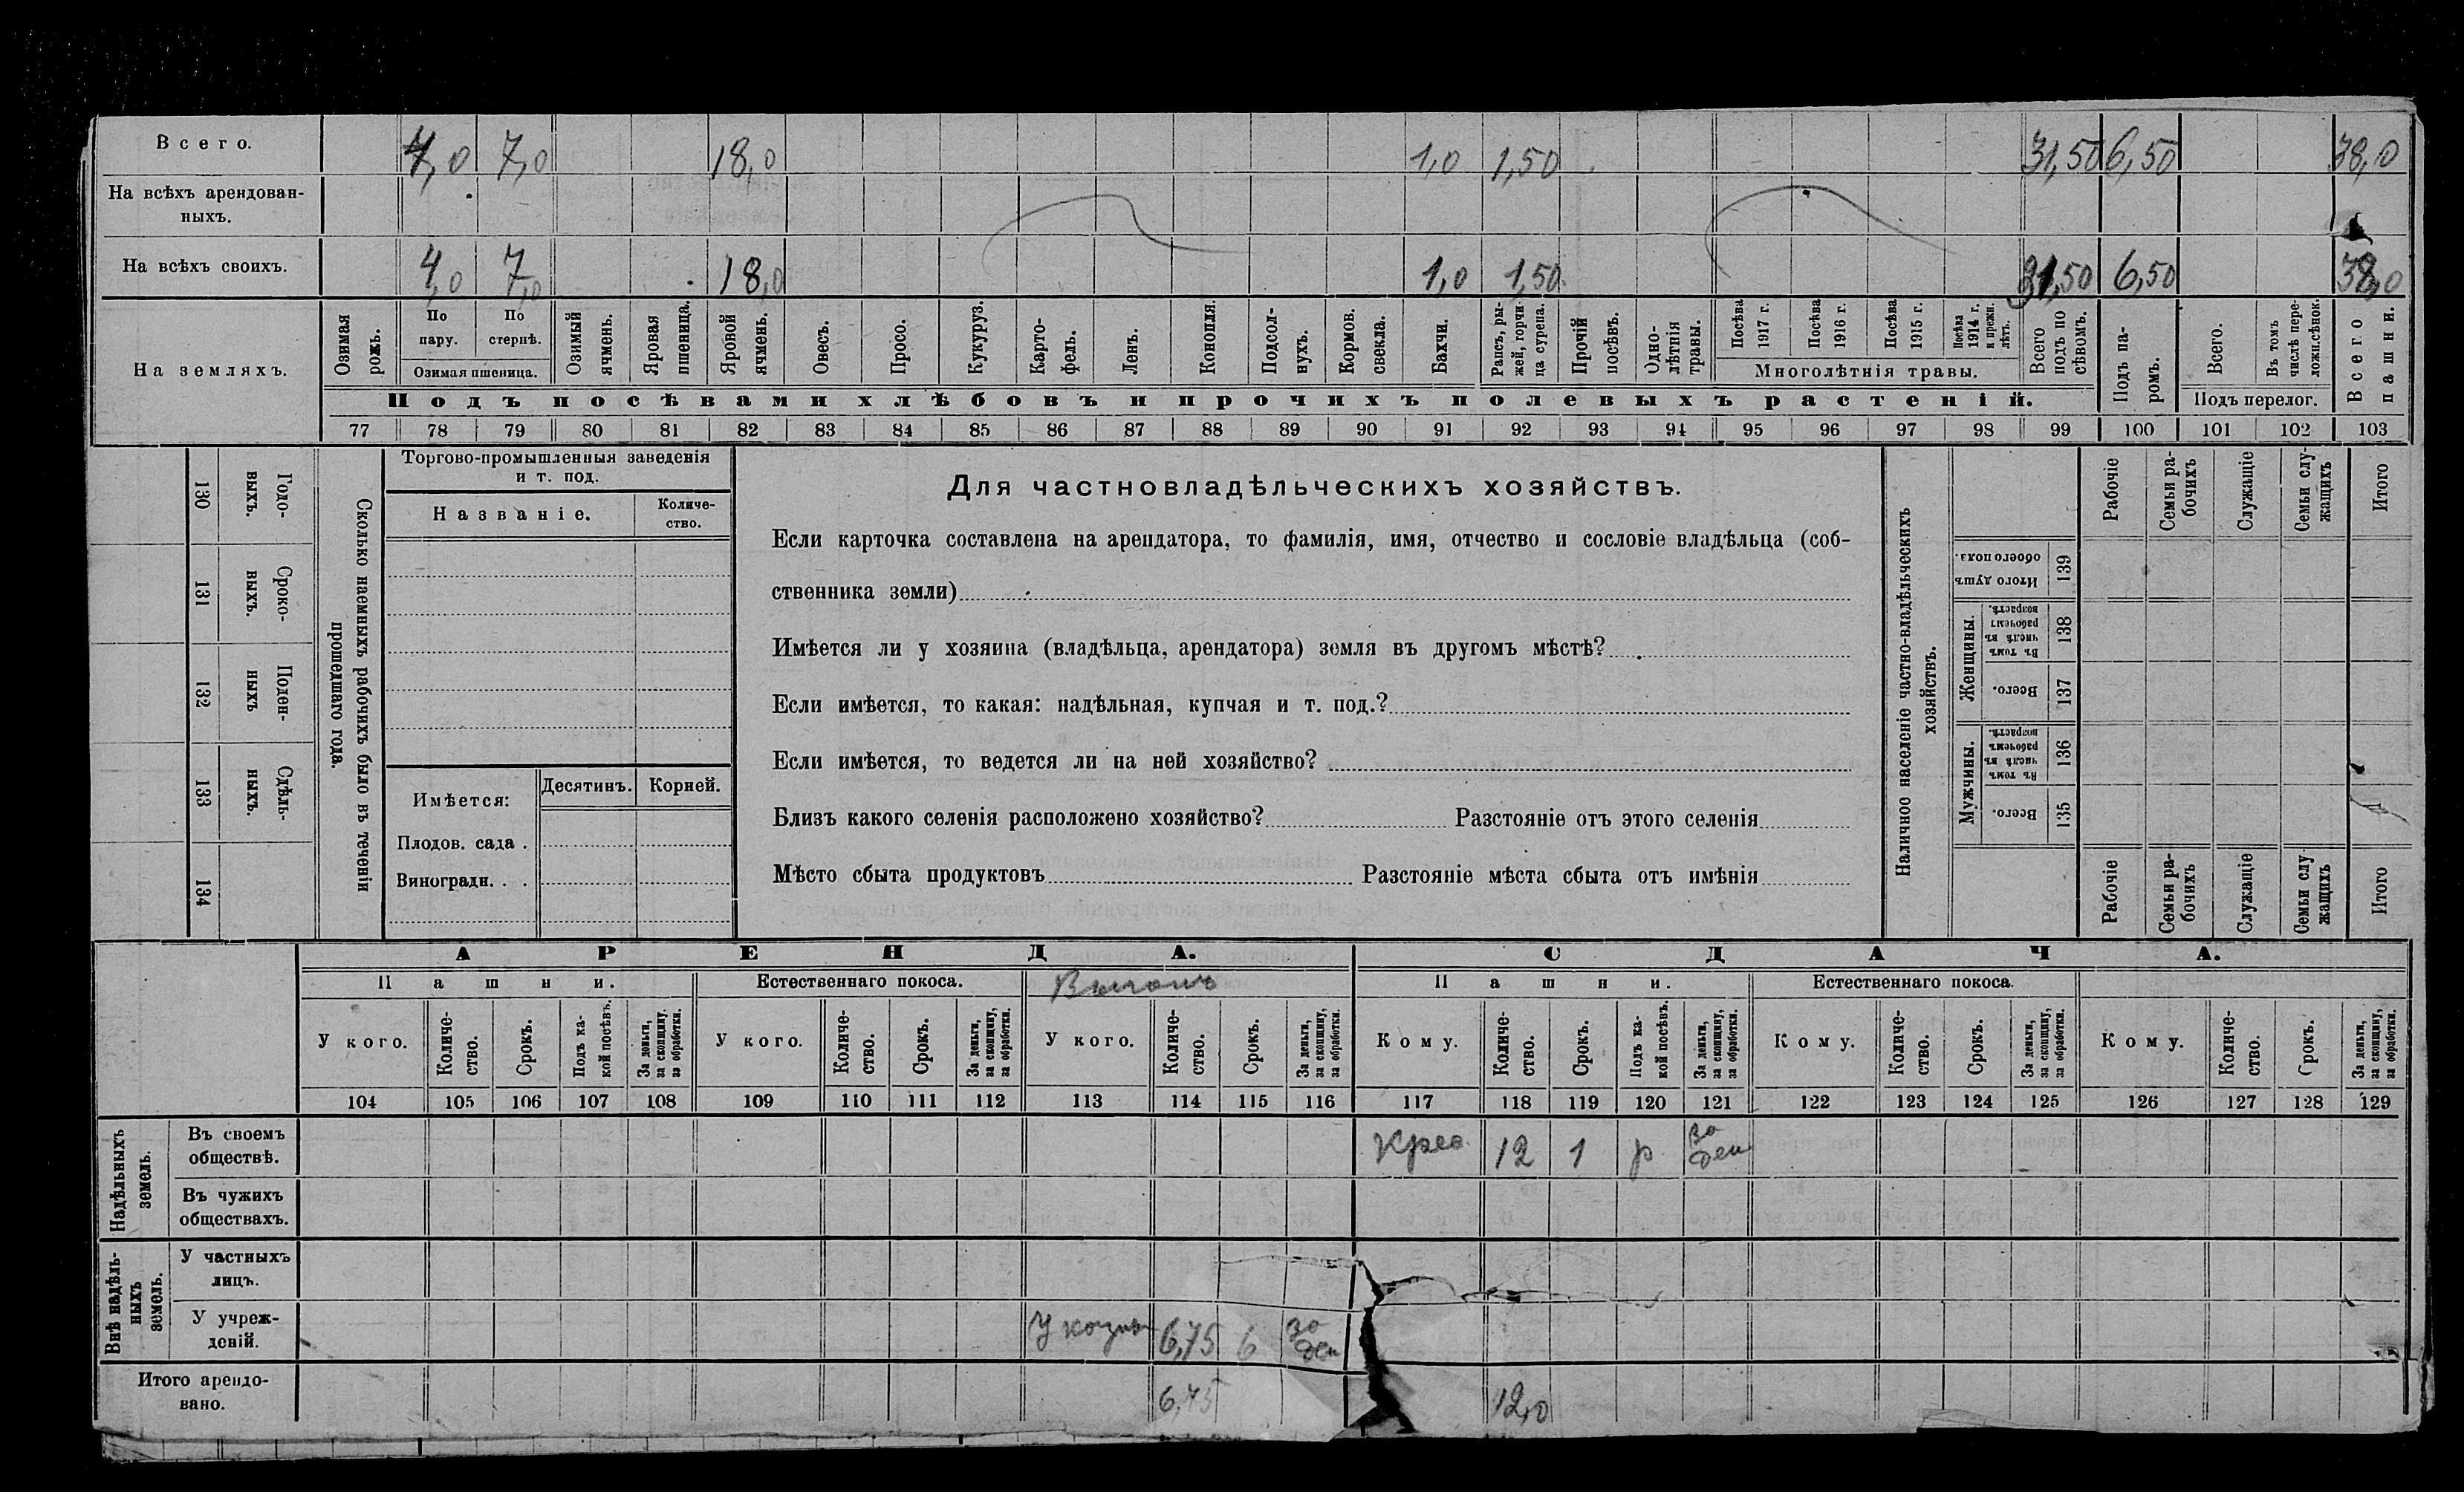 Всего. 4,0 7,0 18,0 1,0 1,50 31,50 6,50 38,0
На всѣхъ арендован-
ныхъ.
На всѣхъ своихъ. 4,0 7,0 18,0 1,0 1,50 31,50 6,50 38,0
На земляхъ.
Озимая рожь.
По пару.
По стернѣ.
Озимая пшеница.
Озимый ячмень.
Яровая пшеница.
Яровой ячмень.
Овесъ.
Просо.
Кукуруз.
Карто-
фель.
Ленъ.
Конопля.
Подсол-
нухъ.
Кормов. свекла.
Бахчи.
Рапсъ, ры-
жей, горчи-
ца сурепа.
Прочій посѣвъ.
Одно-
лѣтнія травы.
Посѣва 1917 г.
Посѣва 1916 г.
Посѣва 1915 г.
Посѣва 1914 г. и прежн. лѣтъ.
Многолѣтнія травы.
Всего подъ по
сѣвомъ.
Подъ па-
ромъ.
Всего.
Въ томъ числѣ пере-
ложн.сѣнок.
Подъ перелог.
Всего пашни.
Подъ посѣвами хлѣбовъ и прочихъ полевыхъ растеній.
77 78 79 80 81 82 83 84 85 86 87 88 89 90 91 92 93 94 95 96 97 98 99 100 101 102 103
130 Годо-
выхъ.
131 Сроко-
выхъ.
132 Поден-
ныхъ
133 Сдѣль-
ныхъ.
134
Сколько наемныхъ рабочихъ было въ теченіи
прошедшаго года.
Торгово-промышленныя заведенія
и т. под.
Названіе.
Количе-
ство.
Имѣется:
Десятинъ. Корней.
Плодов. сада .
Виноградн. . .
Для частновладѣльческихъ хозяйствъ.
Если карточка составлена на арендатора, то фамилія, имя, отчество и сословіе владѣльца (соб-
ственника земли)
Имѣется ли у хозяина (владѣльца, арендатора) земля въ другомъ мѣстѣ?
Если имѣется, то какая: надѣльная, купчая и т. под.?
Если имѣется, то ведется ли на ней хозяйство?
Близъ какого селенія расположено хозяйство? Разстояніе отъ этого селенія
Мѣсто сбыта продуктовъ Разстояніе мѣста сбыта отъ имѣнія
Наличное населеніе частно-владѣльческихъ
хозяйствъ.
Рабочіе
Семьи ра-
бочихъ
Служащіе
Семьи слу-
жащихъ
Итого
Итого душъ обоего пола. 139
Женщины.
Въ томъ числѣ въ рабочемъ возрастѣ. 138
Всего. 137
Мужчины.
Въ томъ числѣ въ рабочемъ возрастѣ. 136
Всего. 135
Рабочіе
Семьи ра-
бочихъ
Служащіе
Семьи слу
жащихъ
Итого
АРЕНДА. СДАЧА.
Пашни. Естественнаго покоса. Выгонъ Пашни. Естественнаго покоса.
У кого.
Количе-
ство.
Срокъ.
Подъ ка-
кой посѣвъ.
За деньги, за скопщину, за обработки.
У кого.
Количе-
ство.
Срокъ.
За деньги, за скопщину, за обработки.
У кого.
Количе-
ство.
Срокъ.
За деньги, за скопщину, за обработки.
Кому.
Количе-
ство.
Срокъ.
Подъ ка-
кой посѣвъ.
За деньги, за скопщину, за обработки.
Кому.
Количе-
ство.
Срокъ.
За деньги, за скопщину, за обработки.
Кому.
Количе-
ство.
Срокъ.
За деньги, за скопщину, за обработки.
104 105 106 107 108 109 110 111 112 113 114 115 116 117 118 119 120 121 122 123 124 125 126 127 128 129
Надѣльныхъ
земель.
Въ своемъ
обществѣ. 12 1 р за ден
Въ чужихъ
обществахъ.
Внѣ надѣль-
ныхъ
земель.
У частныхъ
лицъ.
У учреж-
деній. У казны 6,75 6 за ден
Итого арендо-
вано. 6,75 12,0